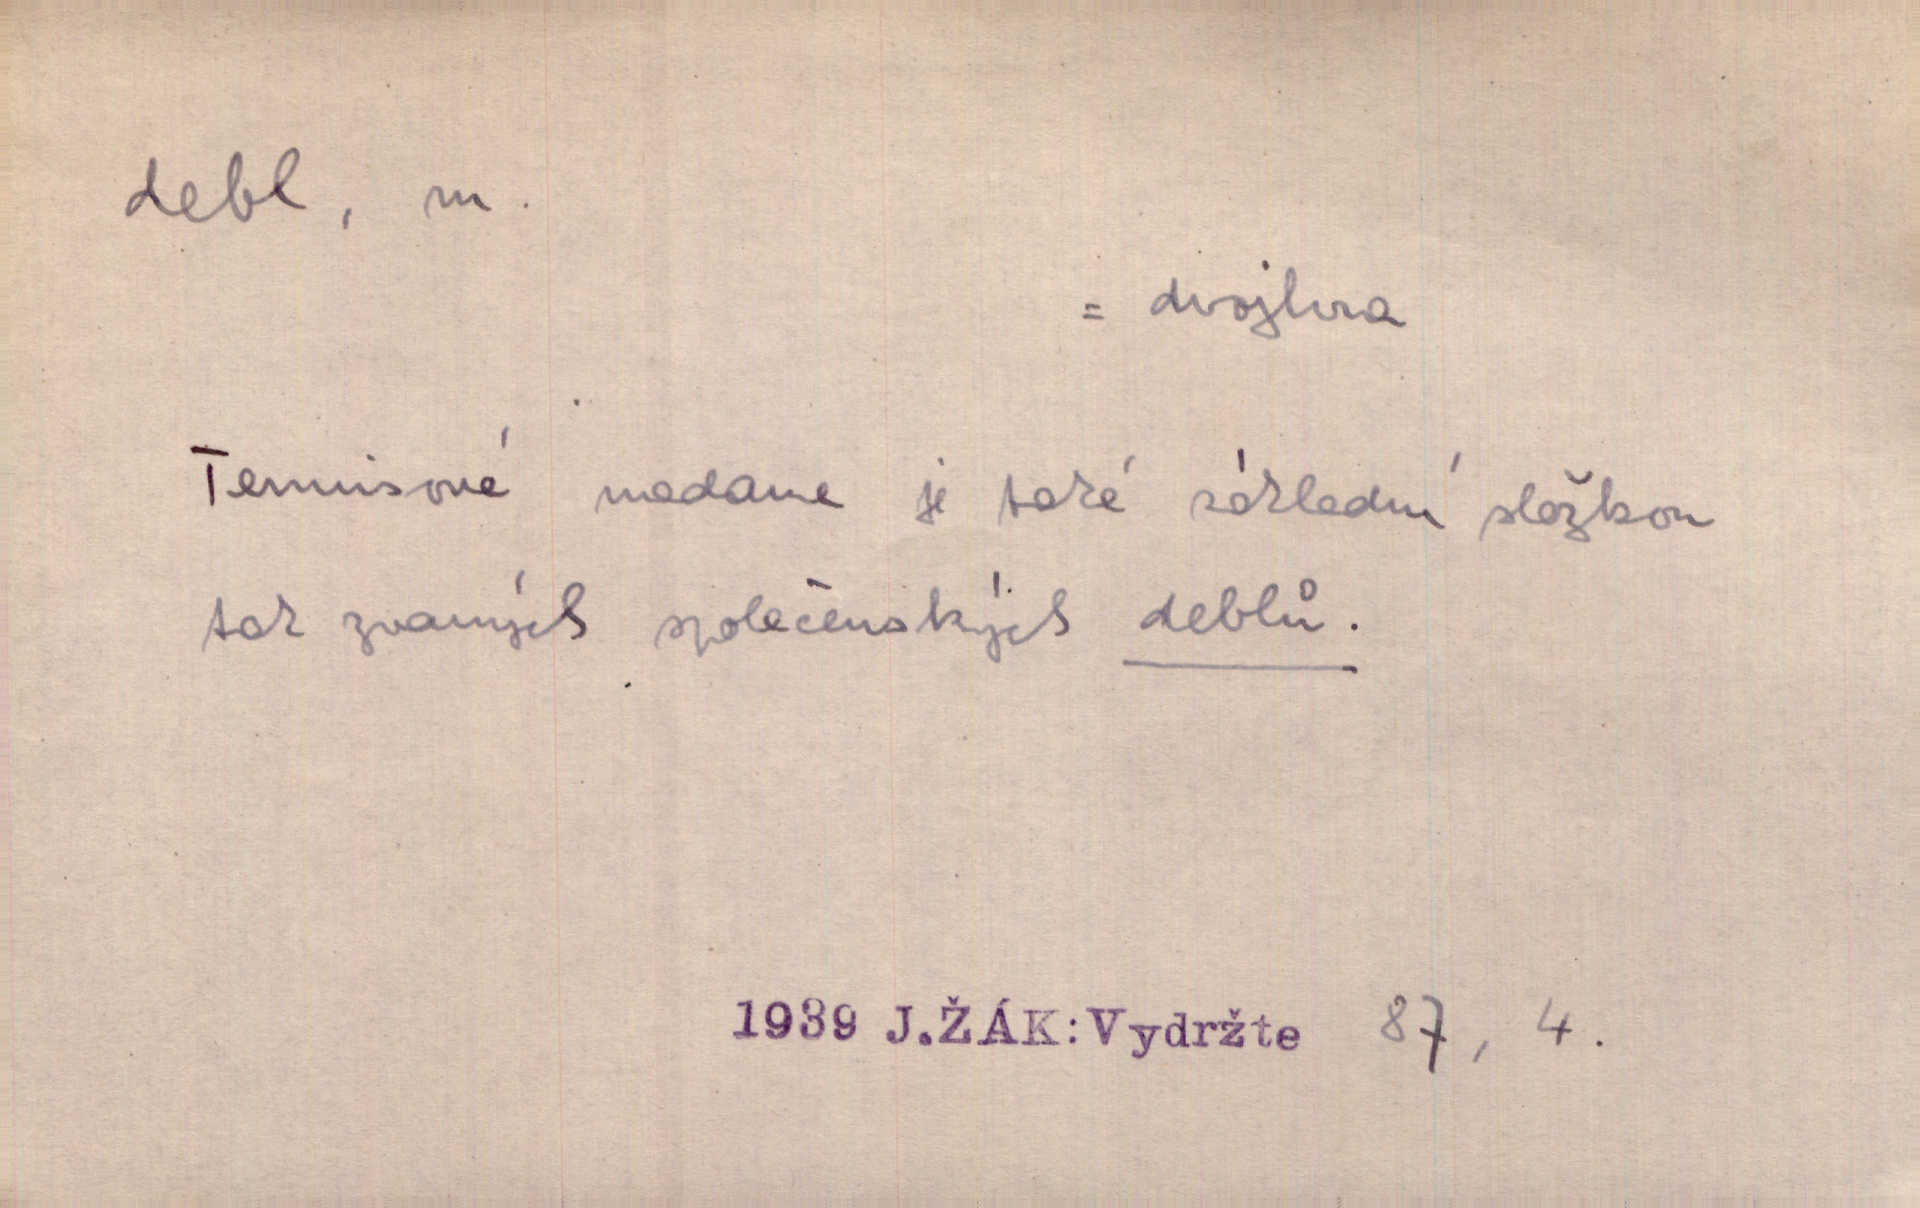 debl, m.
= dvojhra
Tennisové madame je také základní složkou
tak zvaných společenských deblů.
1939 J.ŽÁK:Vydržte 87, 4.